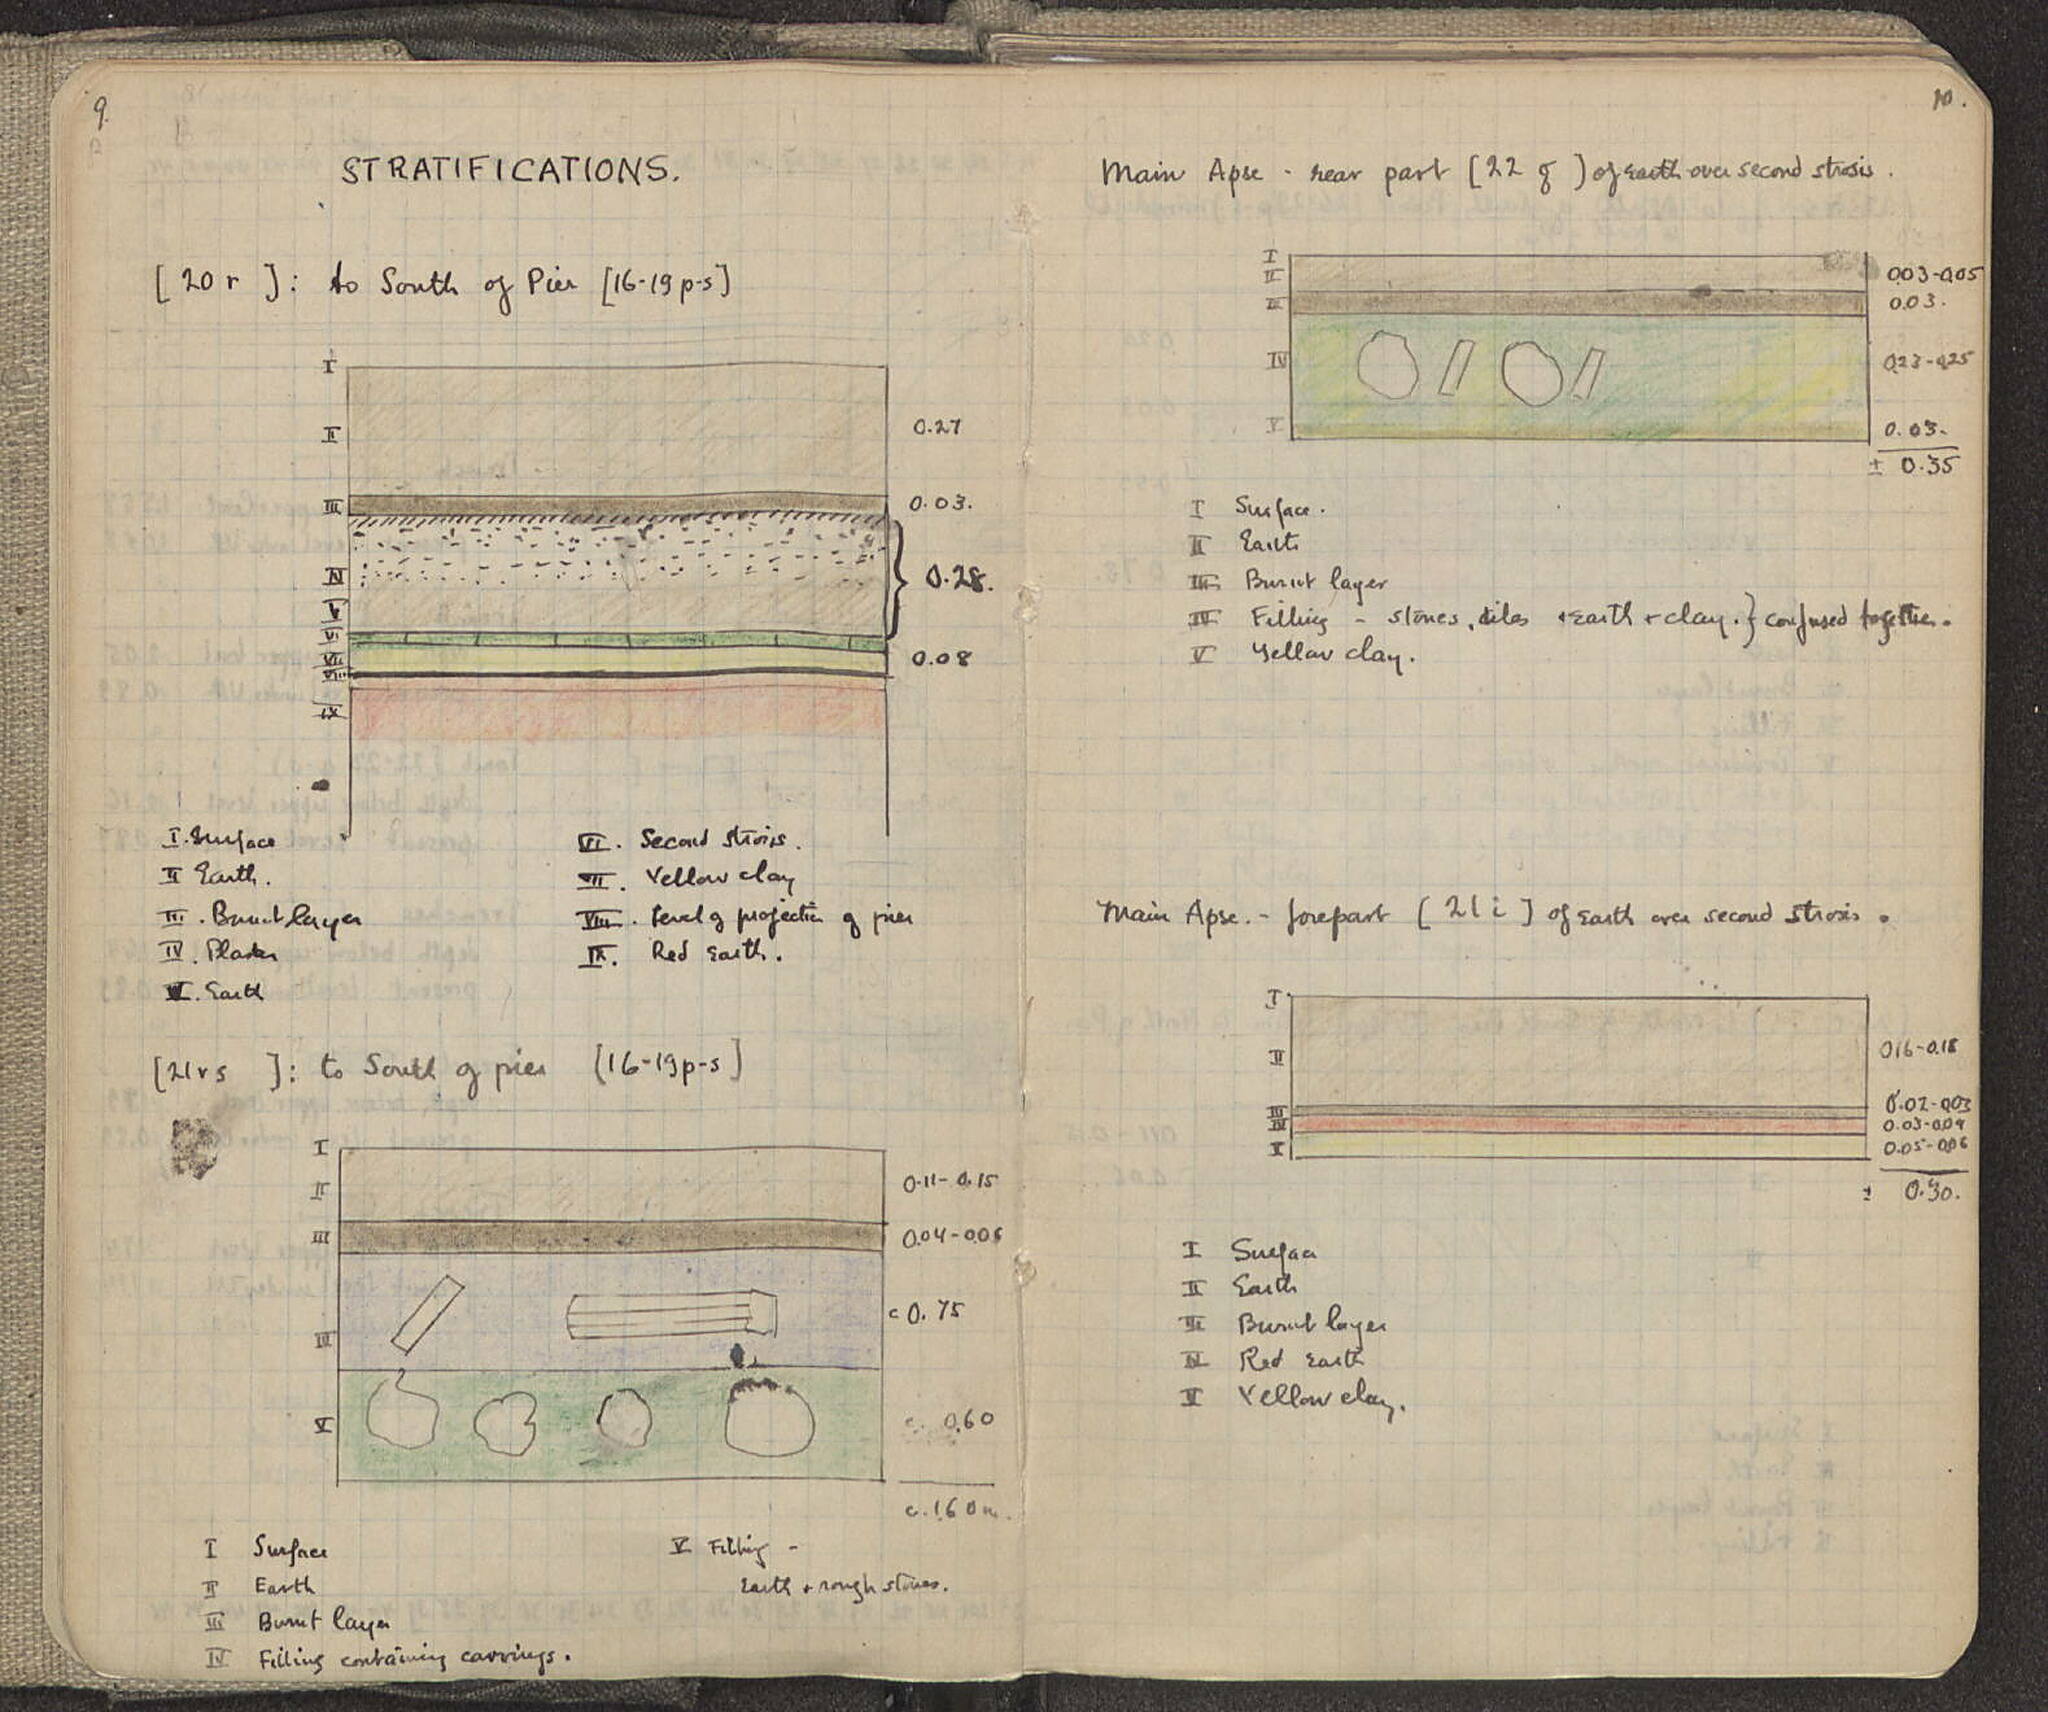 9.
STRATIFICATIONS.
[20 r ]: to South of Pier [16-19 p-s]
I
II
0.27
III
0.03.
IV
V
0.28.
VI
VII
0.08
VIII
IX
I. Surface
II Earth.
III. Burnt layer
IV. Plaster
V. Earth
VI. Second strosis.
VII. Yellow clay
VIII. level of projection of pier
IX. Red Earth.
[21 r s ]: to South of pier [16-19 p-s]
I
II
0.11-0.15
III
0.04-0.06
IV
c 0.75
V
c. 0.60
c. 1.60 m.
I Surface
II Earth
III Burnt layer
IV Filling containing carvings.
V Filling -
Earth + rough stones.
10.
Main Apse - rear part [22 g ] of earth over second strosis.
I
II
0.03-0.05
III
0.03.
IV
0.23-0.25
V
0.03.
± 0.35
I Surface.
II Earth
III Burnt layer
IV Filling - stones, tiles + earth + clay. } confused together.
V Yellow clay.
Main Apse. - forepart [21 i ] of Earth over second strosis.
I
II
0.16-0.18
III
0.02-0.03
IV
0.03-0.04
V
0.05-0.06
± 0.30.
I Surface
II Earth
III Burnt layer
IV Red Earth
V Yellow clay.